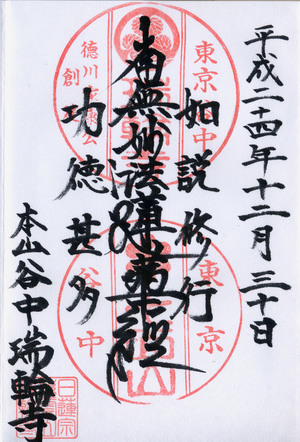 平成二十四年十二月三十日
如説修行
南無妙法蓮華経
功徳甚多
本山谷中瑞輪寺
東京
谷中
徳川
公
創
東京
谷
中
日蓮宗